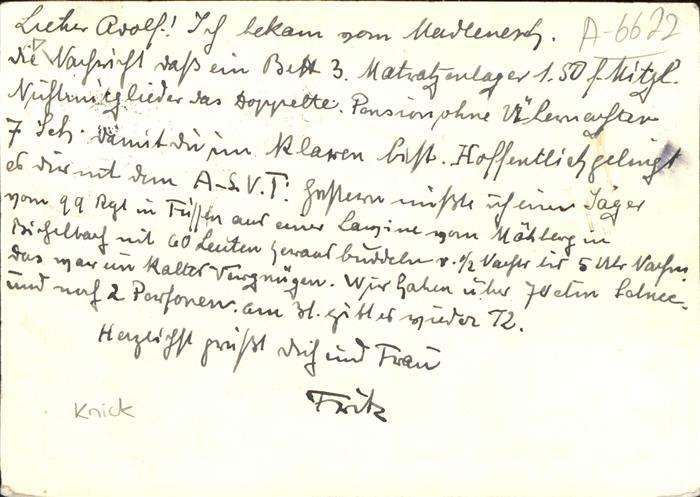 Lieber Adolf! Ich bekam vom Madlenersch. A-6622
die Nachricht daß ein Bett 3. Matratzenlager 1.50 f. Mitgl.
Nichtmitglieder das Doppelte. Pension ohne Übernachten
7 Sch. damit du im klaren bist. Hoffentlich gelingt
es dir mit dem A-S.V.T! Gestern mußte ich einen Jäger
vom 99 Rgt in Füssen aus einer Lawine vom
Bichelbach mit 60 Leuten herausbuddeln v. 1/2 Nachts bis 5 Uhr Nachm.
das war ein kaltes Vergnügen. Wir haben über 70 ctm Schnee.
und noch 2 Personen. am 31. gibt es wieder 12.
Herzlichst grüßt dich und Frau
Fritz
Knick